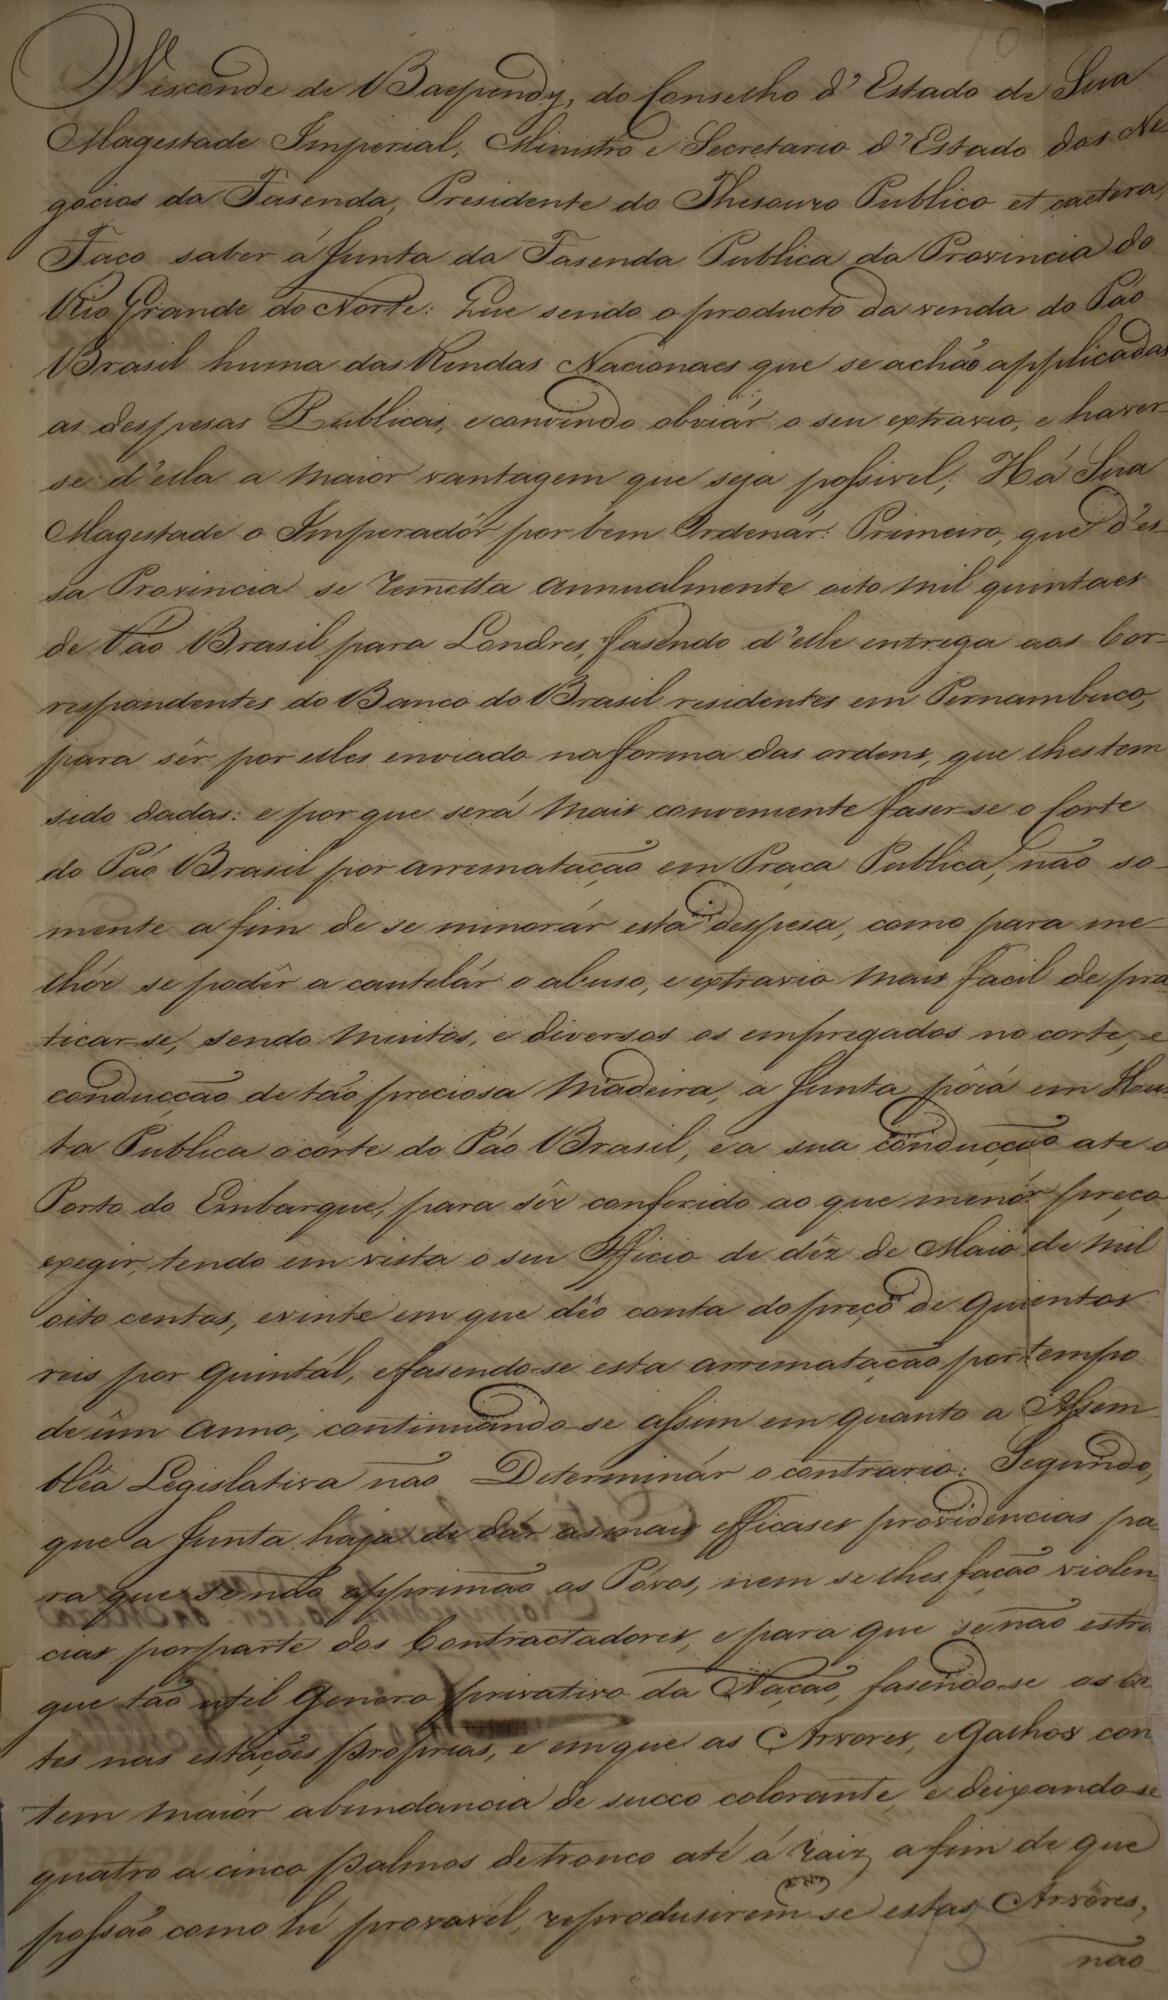 Visconde de Baependy, do Conselho d'Estado de Sua
Magestade Imperial, Ministro e Secretario d'Estado dos Ne
gocios da Fasenda, Presidente do Thesouro Publico et caetera,
Faço saber á Junta da Fasenda Publica da Provincia do
Rio Grande do Norte: Que sendo o producto da venda do Páo
Brasil huma das Rendas Nacionaes que se achão applicadas
as despesas Publicas, e convindo obviár o seu extravio, e haver-
se d'ella a maior vantagem que seja possivel; Há Sua
Magestade o Imperadôr por bem Ordenar: Primeiro, que d'es-
sa Provincia se remetta annualmente oito mil quintaes
de Páo Brasil para Londres, fasendo d'elle entrega aos Cor-
respondentes do Banco do Brasil residentes em Pernambuco,
para sêr por elles enviado na forma das ordens, que lhes tem
sido dadas: e por que será mais conveniente faser-se o Corte
do Páo Brasil por arrematação em Praça Publica, não so-
mente a fim de se minorár esta despesa, como para me-
lhór se podêr a cautelár o abuso, e extravio mais facil de pra
ticar-se, sendo muitos, e diversos os empregados no corte, e
conducção de tão preciosa madeira, a Junta pôrá em Has-
ta Publica o córte do Páo Brasil, e a sua conducção até o
Porto do Embarque, para sêr conferido ao que menór preço
exegir, tendo em vista o seu Officio de déz de Maio de mil
oito centos, e vinte em que dêo conta do preço de quinentos
reis por quintal, e fasendo-se esta arrematação por tempo
de úm anno, continuando-se assim em quanto a Assem
bléa Legislativa não Determinár o contrario: Segundo,
que a Junta haja de dár as mais efficases providencias pa-
ra que se não opprimão os Povos, nem se lhes fação violen
cias por parte dos Contractadores, e para que se não estra
que tão util Genero privativo da Nação, fasendo-se os Cor
tes nas estações proprias, e em que as Arvores, e Galhos con
tem maiór abundancia de succo colorante, e deixando-se
quatro a cinco palmos de tronco até á raiz, a fim de que
possão como hé provavel, reprodusirem-se estas Arvores,
não